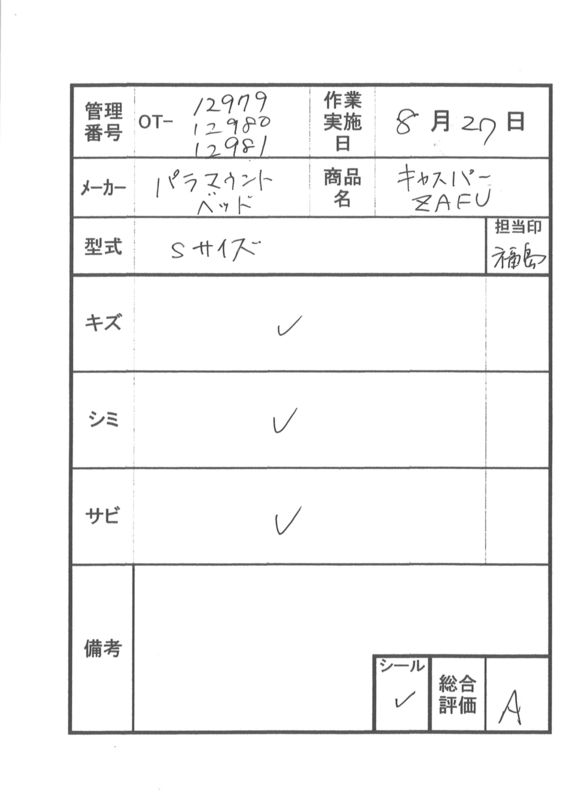 管理番号 OT- 12979 12980 12981 作業実施日 8月27日
メーカー パラマウントベッド 商品名 キャスパー ZAFU
型式 Sサイズ 担当印 福島
キズ ✓
シミ ✓
サビ ✓
備考
シール ✓ 総合評価 A